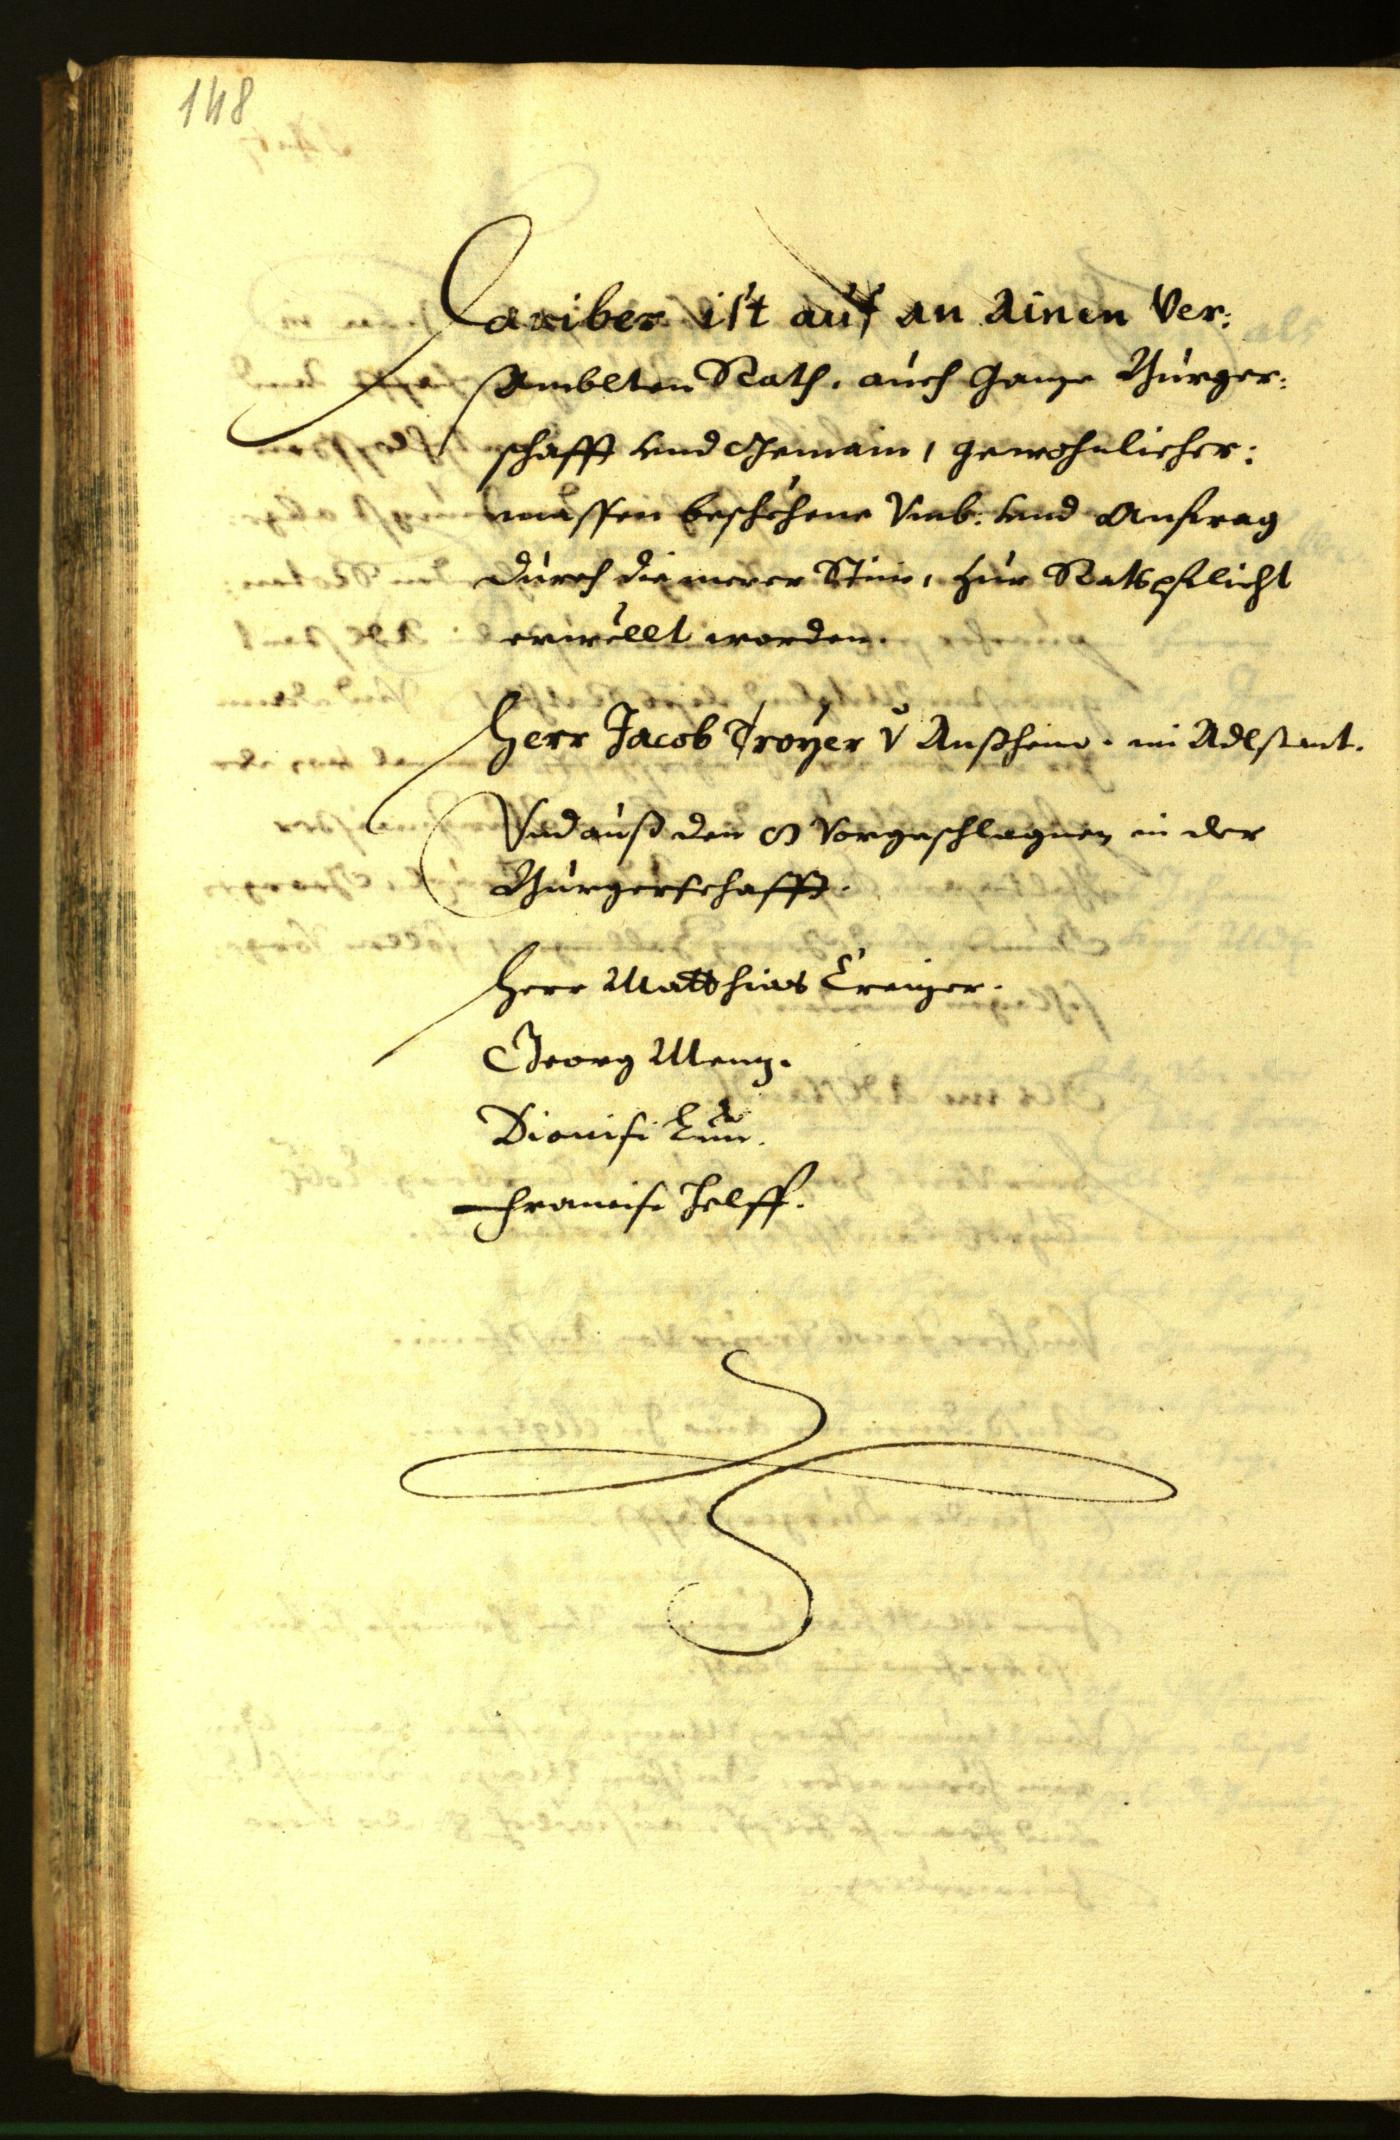 148
Dariber ist auf an ainen Ver:
samblten Rath, auch ganze Bürger:
schafft und Gemain, gewohnlicher:
massen beschehene Vmb: und Anfrag
durch die merer Stim, zur Ratspflicht
erwöllt worden.
Herr Jacob Troyer v Außheim. im Adlstant.
Vnd auß den 8 Vorgeschlagnen in der
Bürgerschafft.
Herr Matthias Creizer.
Georg Menz.
Dionisi
Francisc Helff.